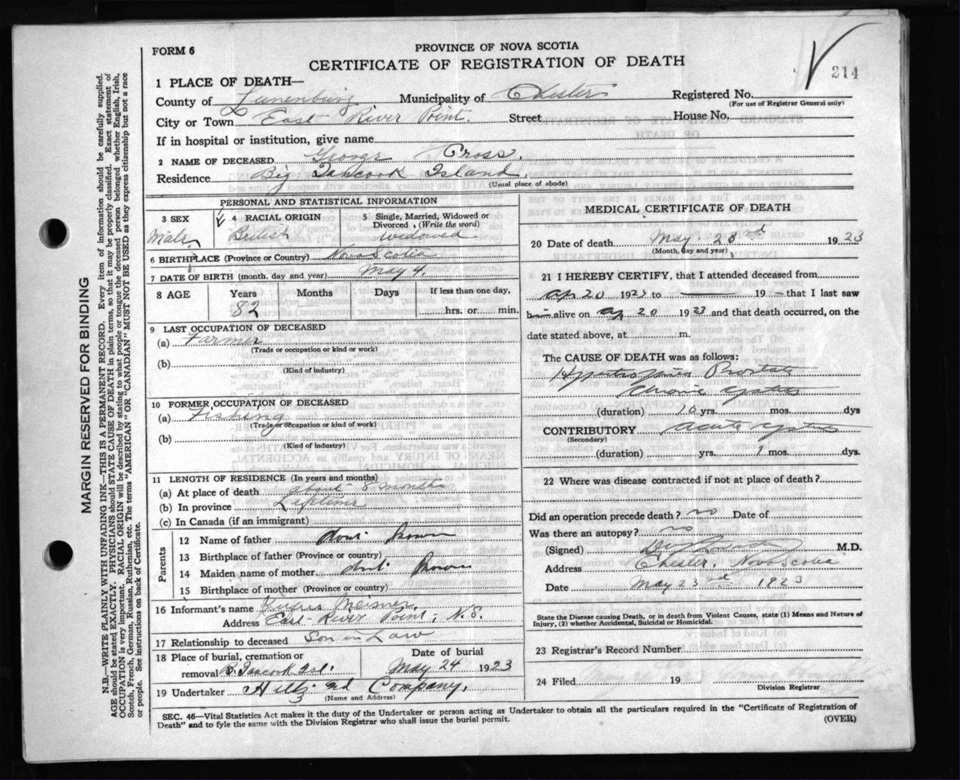 FORM 6
PROVINCE OF NOVA SCOTIA
CERTIFICATE OF REGISTRATION OF DEATH
214
1 PLACE OF DEATH—
County of Lunenburg Municipality of Chester Registered No.
(For use of Registrar General only)
City or Town East River Point. Street House No.
If in hospital or institution, give name
2 NAME OF DECEASED George Cross.
Residence Big Tancook Island.
(Usual place of abode)
PERSONAL AND STATISTICAL INFORMATION
3 SEX 4 RACIAL ORIGIN 5 Single, Married, Widowed or Divorced (Write the word)
Male British widowed
6 BIRTHPLACE (Province or Country) Nova Scotia
7 DATE OF BIRTH (month, day and year) May 4.
8 AGE Years Months Days If less than one day,
82 hrs. or min.
9 LAST OCCUPATION OF DECEASED
(a) Farmer
(Trade or occupation or kind or work)
(b)
(Kind of industry)
10 FORMER OCCUPATION OF DECEASED
(a) Fishing
(Trade or occupation or kind or work)
(b)
(Kind of industry)
11 LENGTH OF RESIDENCE (In years and months)
(a) At place of death about 8 months
(b) In province Lifetime
(c) In Canada (if an immigrant)
Parents
12 Name of father dont Known
13 Birthplace of father (Province or country)
14 Maiden name of mother dont Known
15 Birthplace of mother (Province or country)
16 Informant's name
Address East River Point, N.S.
17 Relationship to deceased Son in Law
18 Place of burial, cremation or Date of burial
removal B. Tancook Isl. May 24 1923
19 Undertaker and Company.
(Name and Address)
MEDICAL CERTIFICATE OF DEATH
20 Date of death May 23rd 1923
(Month, day and year)
21 I HEREBY CERTIFY, that I attended deceased from
ap 20 1923 to — 19 — that I last saw
him alive on ap 20 1923 and that death occurred, on the
date stated above, at m.
The CAUSE OF DEATH was as follows:
Prostate
(duration) 10 yrs. mos. dys
CONTRIBUTORY acute
(Secondary)
(duration) yrs. 1 mos. dys.
22 Where was disease contracted if not at place of death?
Did an operation precede death? no Date of
Was there an autopsy? no
(Signed) M.D.
Address Chester, Nova Scotia
Date May 23rd 1923
State the Disease causing Death, or in death from Violent Causes, state (1) Means and Nature of
Injury, (2) whether Accidental, Suicidal or Homicidal.
23 Registrar's Record Number
24 Filed 19
Division Registrar
SEC. 46—Vital Statistics Act makes it the duty of the Undertaker or person acting as Undertaker to obtain all the particulars required in the "Certificate of Registration of
Death" and to fyle the same with the Division Registrar who shall issue the burial permit.
(OVER)
MARGIN RESERVED FOR BINDING
N.B.—WRITE PLAINLY WITH UNFADING INK—THIS IS A PERMANENT RECORD. Every item of information should be carefully supplied.
AGE should be stated EXACTLY. PHYSICIANS should STATE CAUSE OF DEATH in plain terms, so that it may be properly classified. Exact statement of
OCCUPATION is very important. RACIAL ORIGIN will be described by stating to what people or tongue the deceased person belonged, whether English, Irish,
Scotch, French, German, Russian, Ruthenian, etc. The terms "AMERICAN" OR "CANADIAN" MUST NOT BE USED as they express citizenship but not a race
or people. See instructions on back of Certificate.